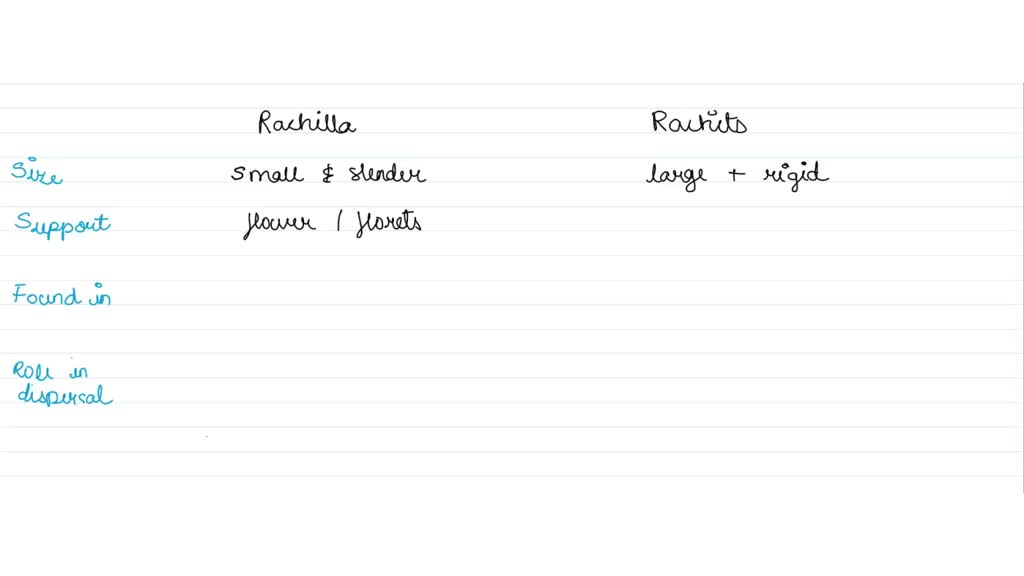 Rachilla Rachits
Size small & slender large + rigid
Support flower / florets
Found in
Role in
dispersal